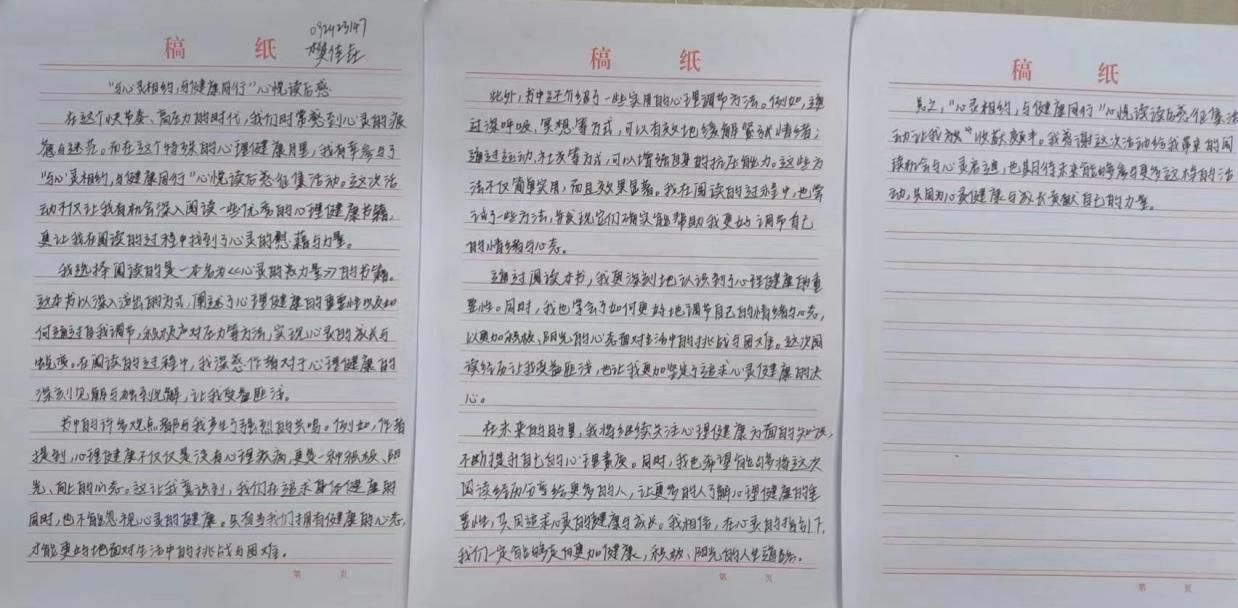 稿 纸
092423147
樊佳
"与心灵相约,与健康同行"心悦读后感
在这个快节奏、高压力的时代,我们时常感到心灵的疲
惫与迷茫。而在这个特殊的心理健康月里,我有幸参与了
"与心灵相约,与健康同行"心悦读后感征集活动。这次活
动不仅让我有机会深入阅读一些优秀的心理健康书籍,
更让我在阅读的过程中找到了心灵的慰藉与力量。
我选择阅读的是一本名为《心灵的力量》的书籍。
这本书以深入浅出的方式,阐述了心理健康的重要性以及如
何通过自我调节,积极应对压力等方法,实现心灵的成长与
。在阅读的过程中,我深感作者对于心理健康的
深刻见解与独到见解,让我受益匪浅。
书中的许多观点都与我产生了强烈的共鸣。例如,作者
提到,心理健康不仅仅是没有心理疾病,更是一种积极、阳
光、向上的心态。这让我意识到,我们在追求身体健康的
同时,也不能忽视心灵的健康。只有当我们拥有健康的心态,
才能更好地面对生活中的挑战与困难。
第 页
稿 纸
此外,书中还介绍了一些实用的心理调节方法。例如,通
过深呼吸、冥想等方式,可以有效地缓解紧张情绪;
通过运动、社交等方式,可以增强自身的抗压能力。这些方
法不仅简单实用,而且效果显著。我在阅读的过程中,也尝
试了一些方法,并发现它们确实能帮助我更好调节自己
的情绪与心态。
通过阅读本书,我更深刻地认识到了心理健康的重
要性。同时,我也学会了如何更好地调节自己的情绪与心态,
以更加积极、阳光的心态面对生活中的挑战与困难。这次阅
读经历让我受益匪浅,也让我更加坚定了追求心灵健康的决
心。
在未来的的里,我将继续关注心理健康方面的知识,
不断提升自己的心理素质。同时,我也希望能够将这次
阅读经历分享给更多的人,让更多的人了解心理健康的重
要性,共同追求心灵的健康与成长。我相信,在心灵的指引下,
我们一定能够走向更加健康、积极、阳光的人生道路。
第 页
稿 纸
总之,"心灵相约,与健康同行"心悦读读后感征集活
动让我收获颇丰。我感谢这次活动给我带来的阅
读机会与心灵启迪,也期待未来能够参与更多这样的活
动,共同为心灵健康与成长贡献自己的力量。
第 页